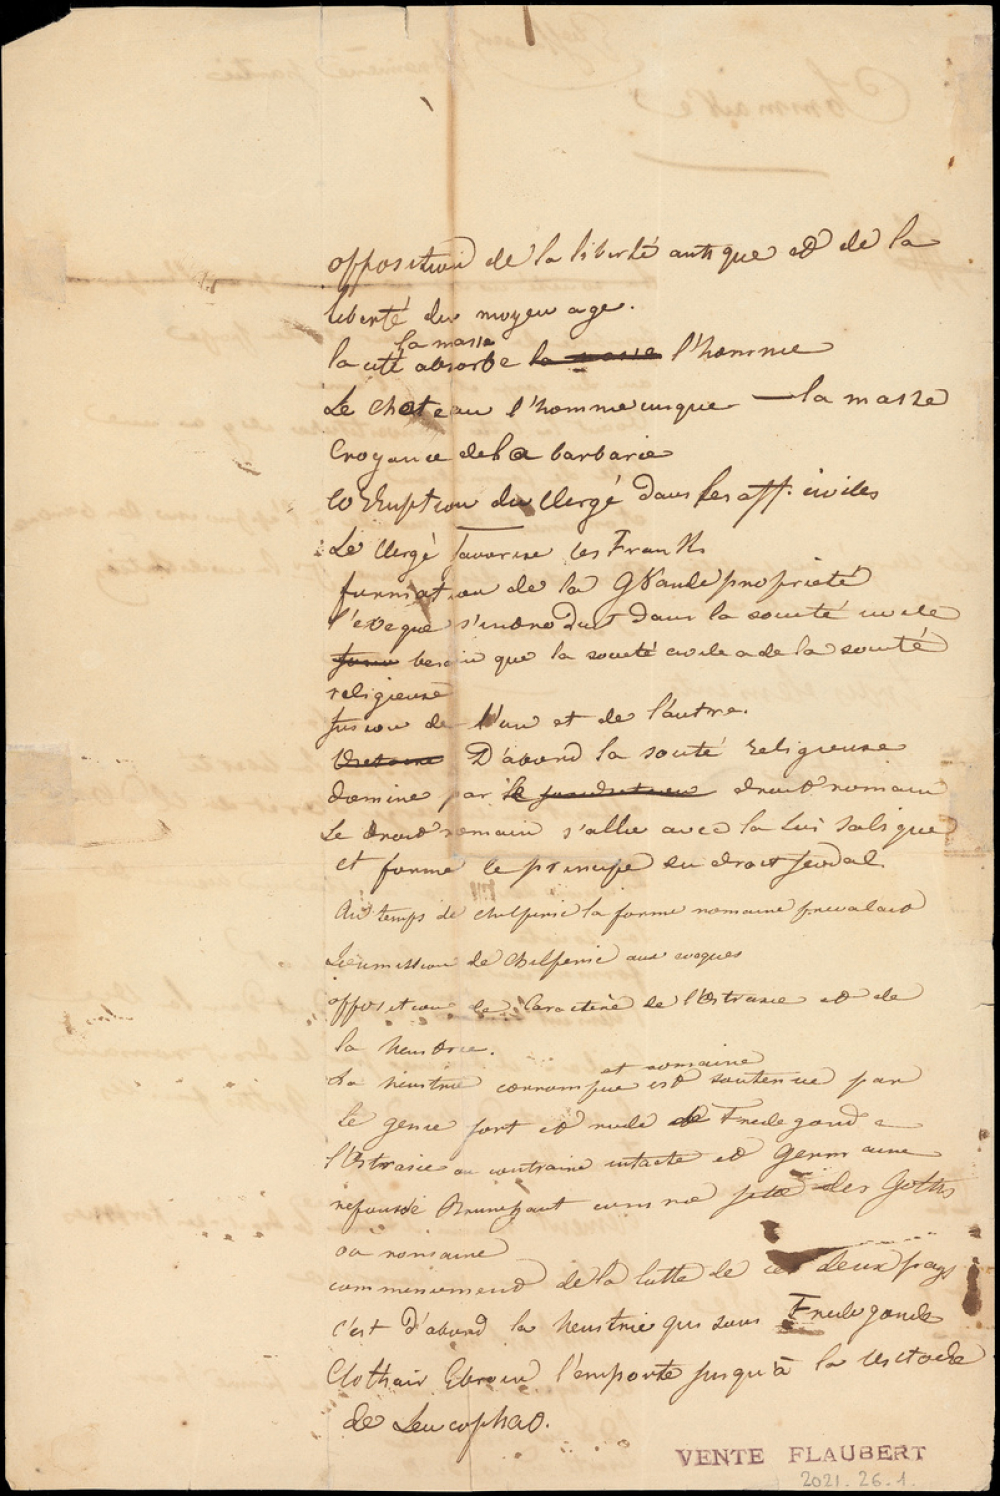 opposition de la liberté antique et de la
liberté du moyen age.
la masse
la cité absorbe la masse l'homme
Le chateau l'homme jusque — la masse
Croyance de la barbarie
Corruption du Clergé dans les aff. civiles
Le Clergé favorise les Franks
formation de la Grande propriété
l'éveque s'introduit dans la société civile
besoin que la société civile a de la société
religieuse
fusion de l'un et de l'autre.
D'abord la société religieuse
domine par le droit romain
Le droit romain s'allie avec la Loi Salique
et forme le principe du droit feodal.
Au temps de Chilperic la forme romaine prevalait
Soumission de Chilperic aux eveques
opposition de Caractère de l'Ostrasie et de
la Neustrie.
et romaine
La Neustrie corrompue est soutenue par
le genie fort et rude de Fredegonde
l'Ostrasie au contraire intacte et Germaine
repousse Brunehaut comme des Goths
ou romaine
commencement de la lutte de ces deux pays
c'est d'abord la Neustrie qui sous Fredegonde
Clothair Ebroin l'emporte jusqu'à la victoire
de Leucophao.
VENTE FLAUBERT
2021.26.1